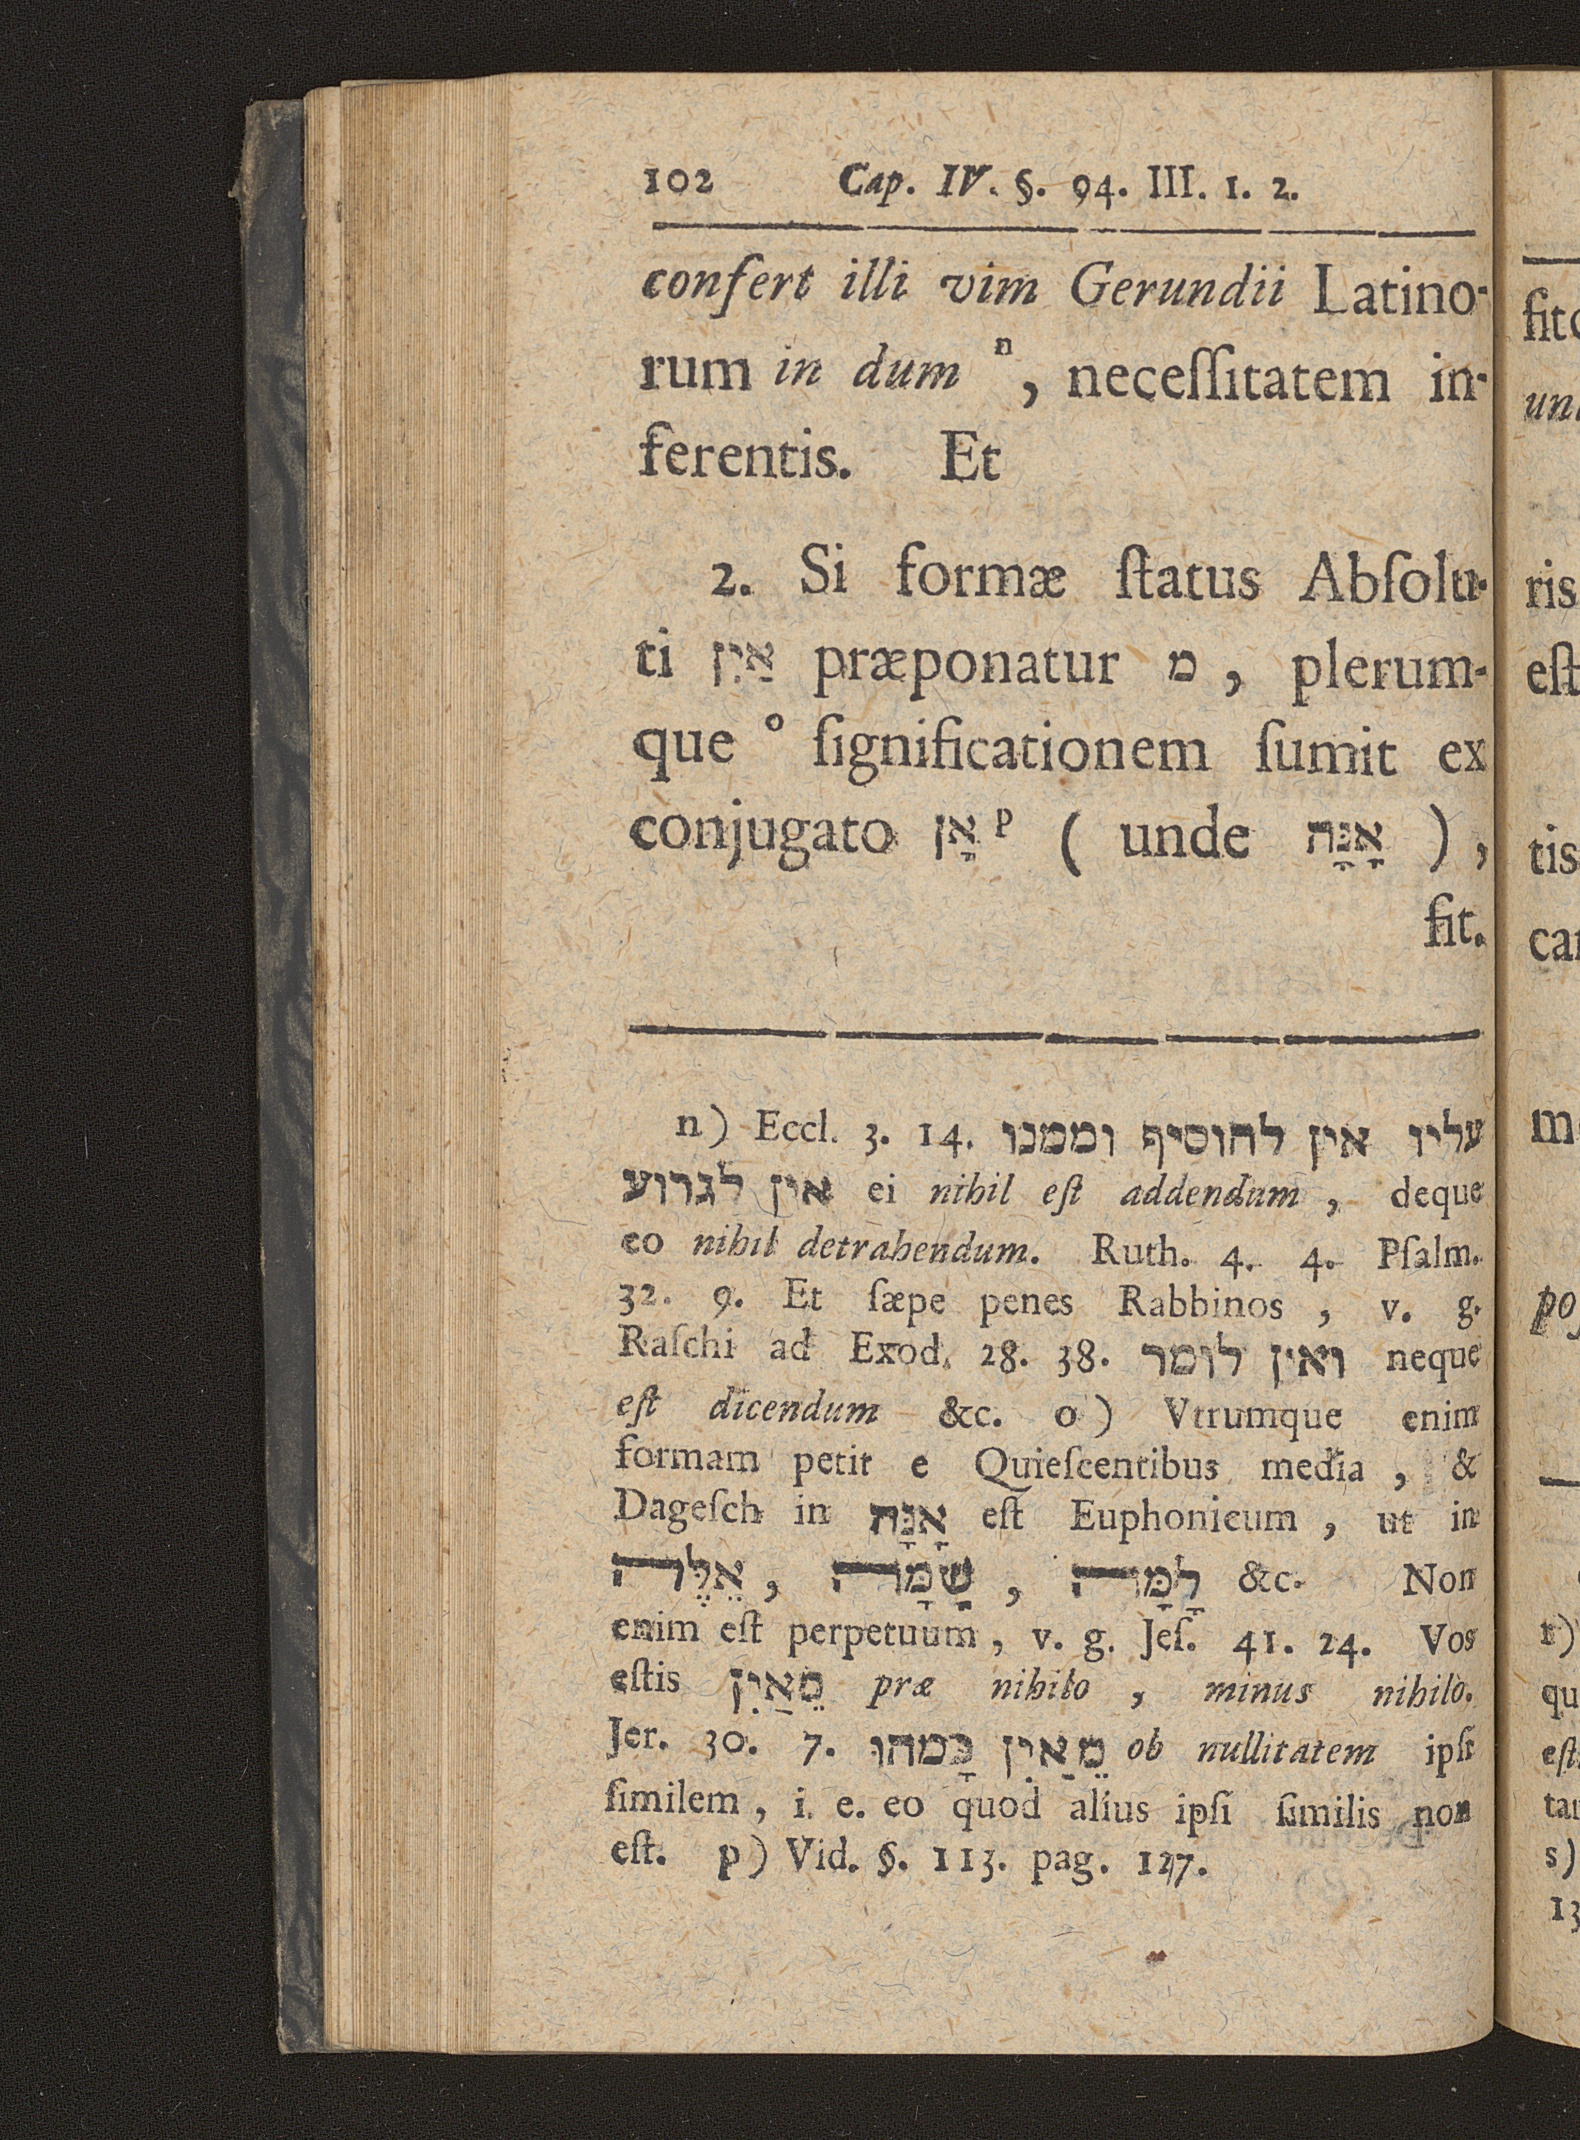 102 Cap. IV. §. 94. III. 1. 2.
confert illi vim Gerundii Latino-
rum in dum ⁿ, neceſſitatem in-
ferentis. Et
2. Si formæ ſtatus Abſolu-
ti אַיִן præponatur מ, plerum-
que ° ſignificationem ſumit ex
conjugato אָן ᵖ ( unde אָנָּה ),
fit.
n) Eccl. 3. 14. עליו אין להוסיף וממנו
אין לגרוע ei nihil eſt addendum, deque
eo nihil detrahendum. Ruth. 4. 4. Pſalm.
32. 9. Et ſæpe penes Rabbinos, v. g.
Raſchi ad Exod. 28. 38. ואין לומר neque
eſt dicendum &c. o) Vtrumque enim
formam petit e Quieſcentibus media, &
Dageſch in אָנָּה eſt Euphonicum, ut in
לָמָּה, שָׁמָּה, אֵלֶּה &c. Non
enim eſt perpetuum, v. g. Jeſ. 41. 24. Vos
eſtis מֵאַיִן præ nihilo, minus nihilo.
Jer. 30. 7. מֵאַיִן כָּמהוּ ob nullitatem ipſi
ſimilem, i. e. eo quod alius ipſi ſimilis non
eſt. p) Vid. §. 113. pag. 127.